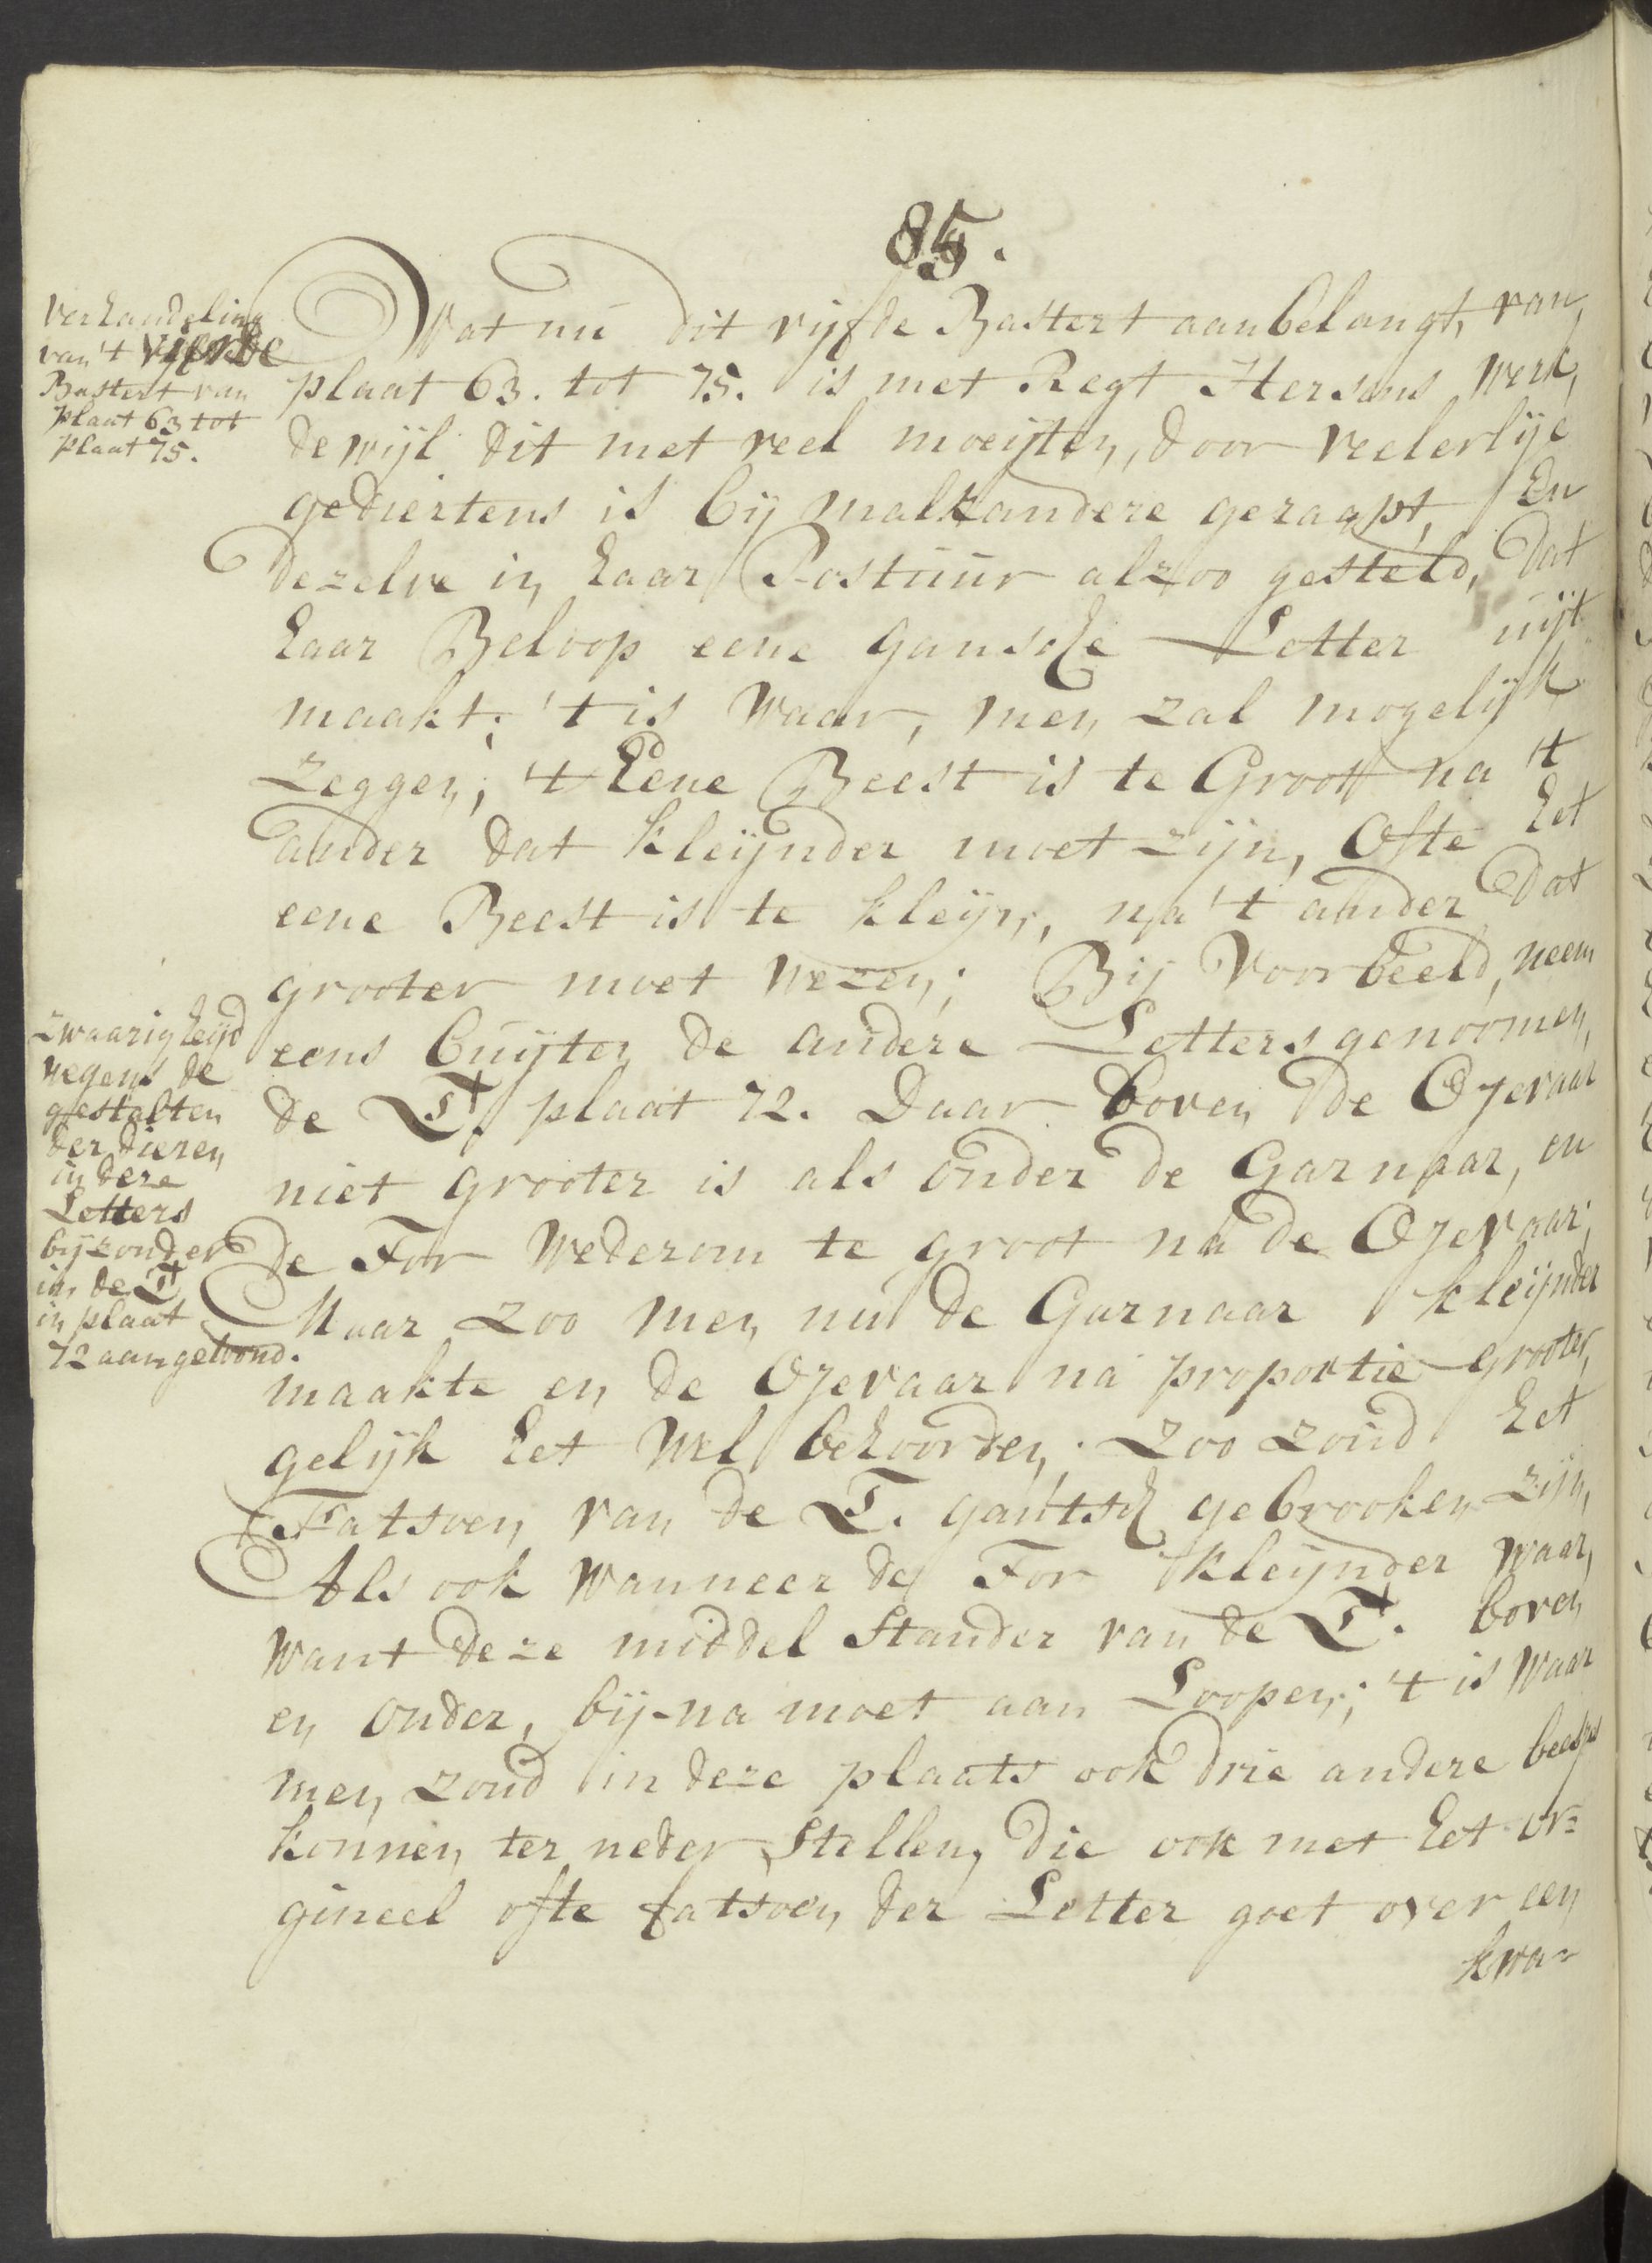 85.
Verhandeling
van 't vijfde
Bastert van
plaat 63 tot
plaat 75.
Wat nu dit vijfde Bastert aanbelangt, van
plaat 63. tot 75. is met Regt Hersens werk,
dewijl dit met veel moeijten, door veelerlije
gediertens is bij malkandere geraapt, En
dezelve in haar Postuur alzoo gesteld, dat
haar Beloop eene gansche Letter uijt
maakt; 't is waar, men zal mogelijk
zeggen; 't Eene Beest is te Groot na 't
ander dat kleijnder moet zijn, Ofte het
eene Beest is te kleijn, na 't ander dat
grooter moet wezen; Bij Voorbeeld, neem
eens buijten de andere Letters genoomen,
de T. plaat 72. Daar boven de Ojevaar
niet grooter is als onder de Garnaar, en
de Tor wederom te groot na de Ojevaar;
Maar zoo men nu de Garnaar kleijnder
maakte en de Ojevaar na proportie grooter,
gelijk het wel behoorden; zoo zoud het
Fatsoen van de T. gantsch gebrooken zijn,
Als ook wanneer de Tor kleijnder waar,
want deze middel Stander van de T. boven
en onder, bij-na moet aan Loopen; 't is waar
men zoud in deze plaats ook drie andere beests
konnen ter neder Stellen, die ook met het or=
gineel ofte fatsoen der Letter goet over een
kwa=
zwaarigheijd
wegens de
gestalten
der dieren
in deze
Letters
bijzonder
in de T
in plaat
72 aangetoond.